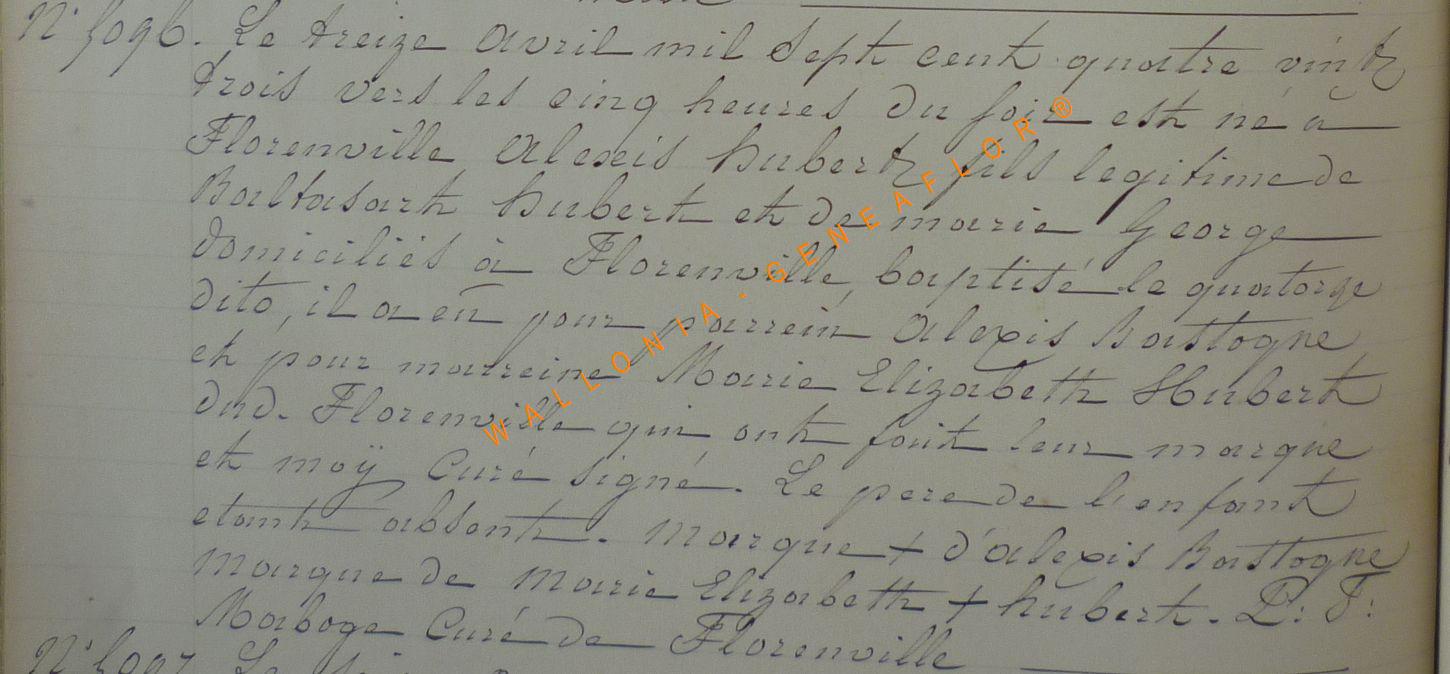 N° 5096. Le treize avril mil Sept cent quatre vingt
trois vers les cinq heures du soir est né à
Florenville Alexis hubert fils legitime de
Baltasart hubert et de marie George
domiciliés à Florenville, baptisé le quatorze
dito, il a eû pour parrein Alexis Bastogne
et pour marreine Marie Elizabeth Hubert
dud. Florenville qui ont fait leur marque
et moÿ Curé signé. Le pere de l'enfant
etant absent. Marque + d'Alexis Bastogne
Marque de Marie Elizabeth + hubert. P: F:
Maboge Curé de Florenville
N° 5097. Le
WALLONIA-GENEAFLOR®